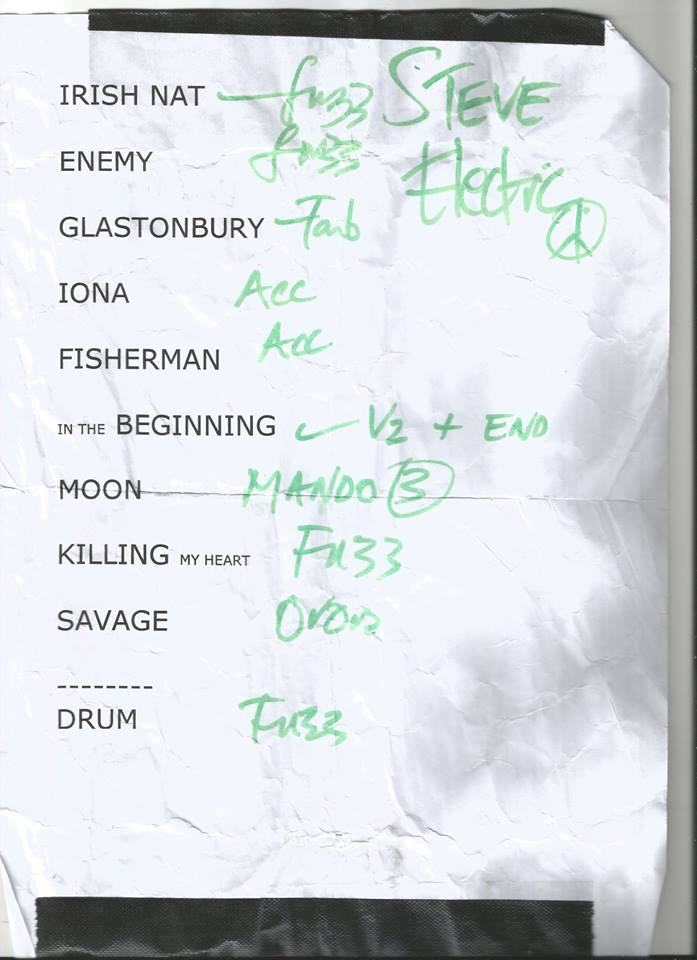 IRISH NAT fuzz STEVE
ENEMY fuzz Electric
GLASTONBURY
IONA Acc
FISHERMAN Acc
IN THE BEGINNING V2 + END
MOON MANDO 3
KILLING MY HEART Fuzz
SAVAGE
--------
DRUM Fuzz